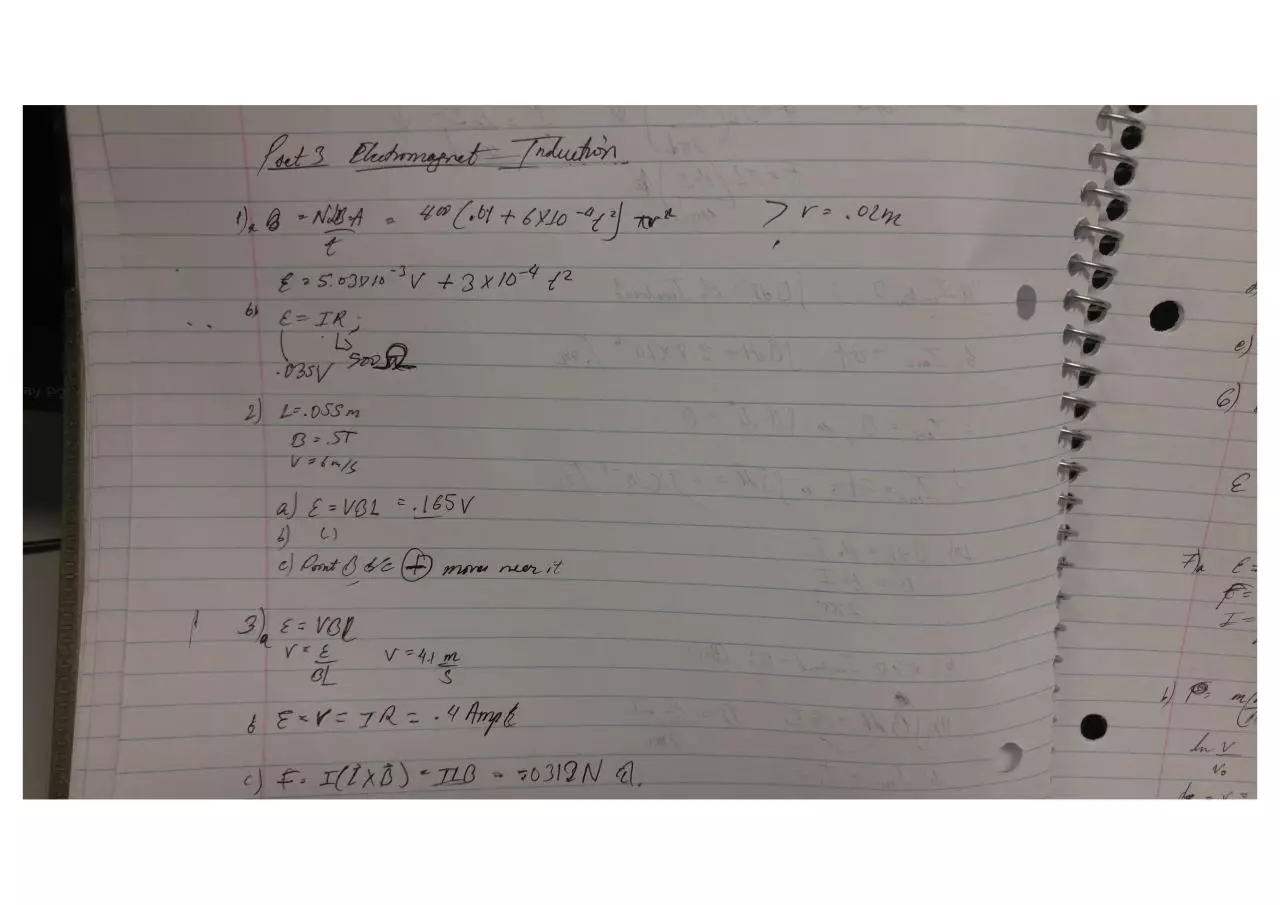 Pset 3 Electromagnet Induction
1)a B = N·B·A / t = 400 (.01 + 6x10^-4 t^2) πr^2 > r = .02m
ε = 5.03x10^-3 V + 3x10^-4 t^2
b) ε = IR;
.035V 500Ω
2) L=.055m
B = .5T
V = 6m/s
a) ε = VBL = .165V
b) (-)
c) Point B b/c + moves near it
3)a ε = VBL
V = ε/BL V = 4.1 m/s
b ε = V = IR = .4 Amp
c) F = I(l×B) = ILB = .0312N
e)
6)
ε
7)a ε =
F =
I =
b) F =
ln V/V₀